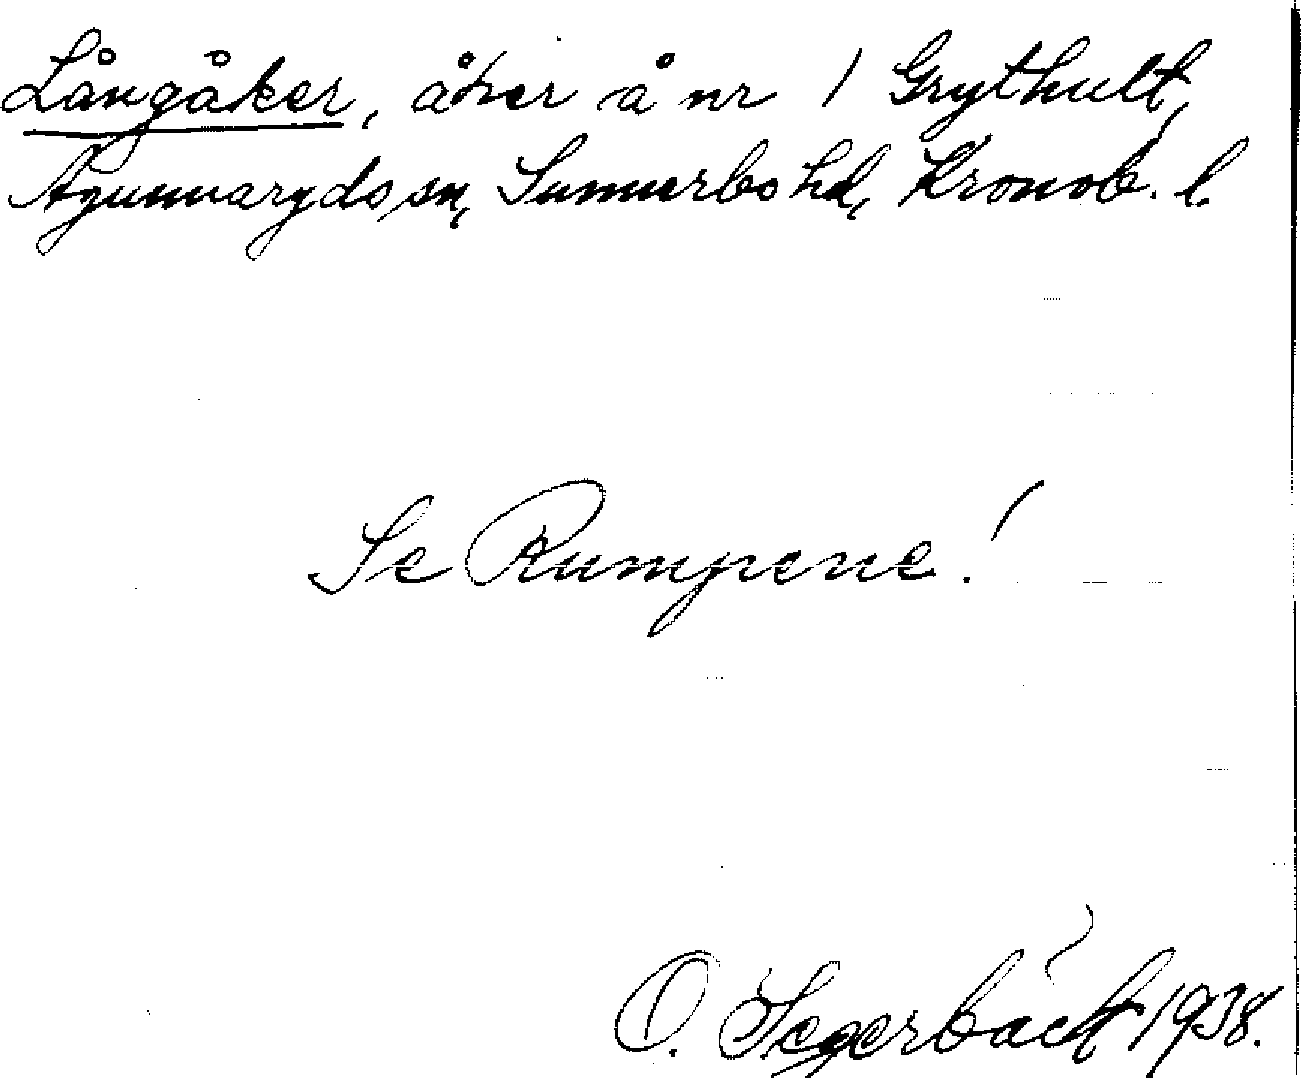 Långåker, åker å nr 1 Grythult,
Agunnaryds sn, Sunnerbo hd, Kronob. l.
Se Rumpene!
O. Segerbäck 1938.